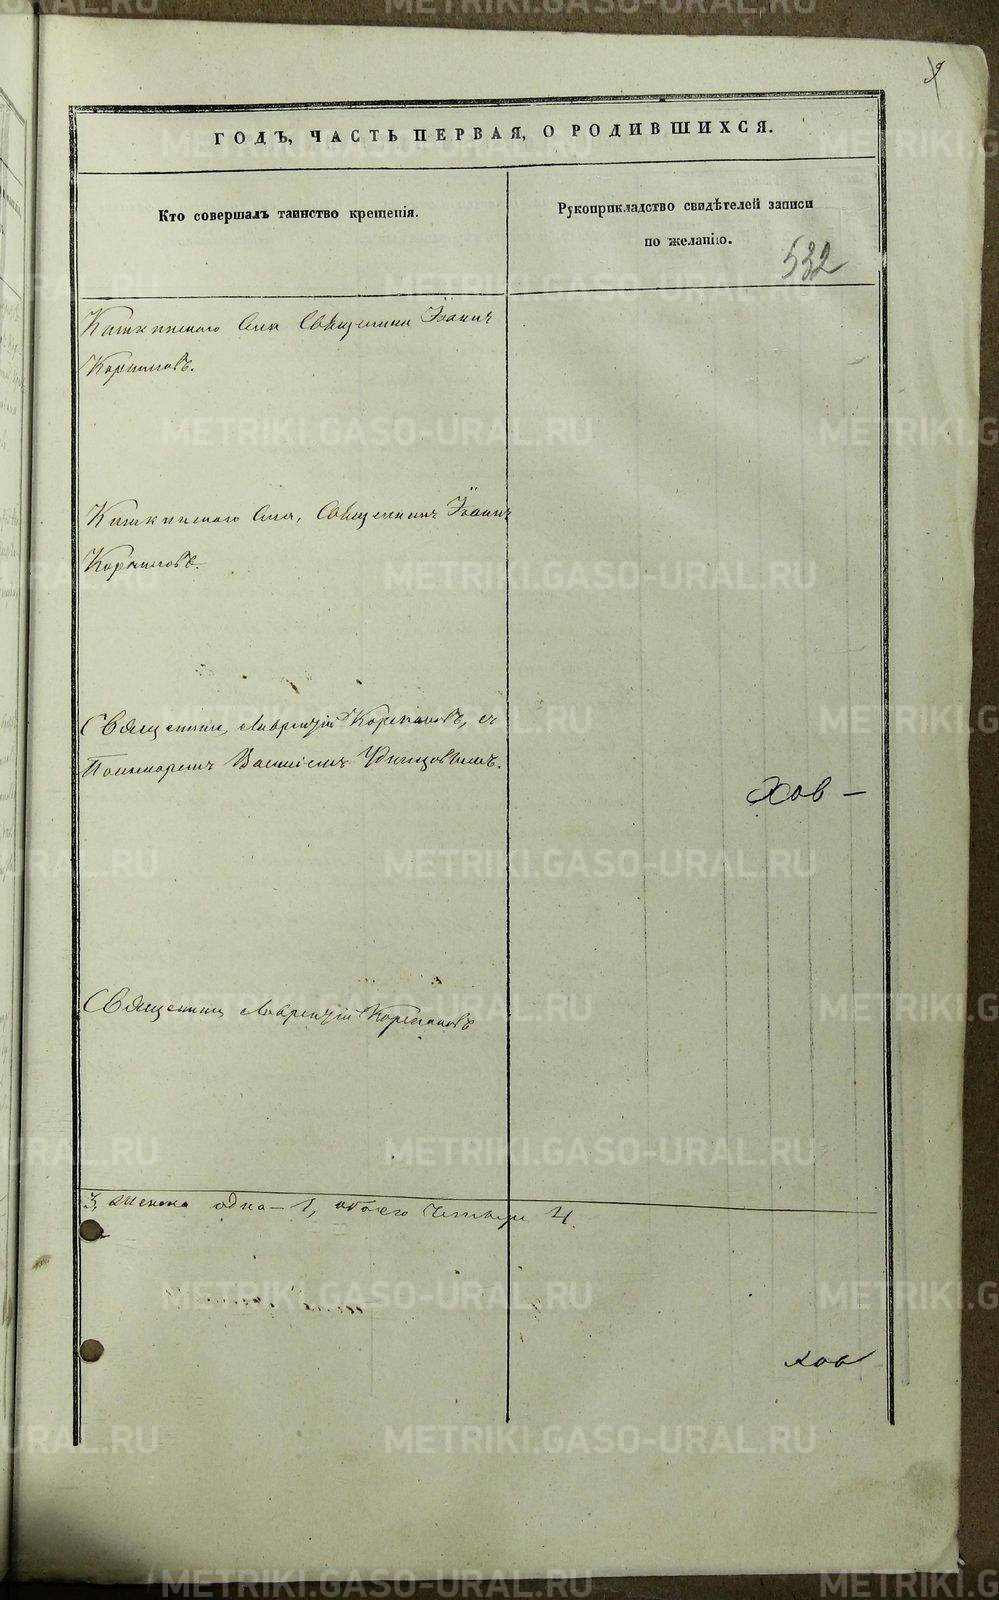 9
ГОДЪ, ЧАСТЬ ПЕРВАЯ, О РОДИВШИХСЯ.
Кто совершалъ таинство крещенія.
Рукоприкладство свидѣтелей записи
по желанію.
532
Села Священникъ Іоаннъ
Корниловъ.
Села, Священникъ Іоаннъ
Корниловъ.
Священникъ Лаврентій Корепановъ, съ
Пономаремъ Василіемъ Удинцовымъ.
Хов —
Священникъ Лаврентій Корепановъ
3, женска одна – 1, обоего четыре 4.
хов
METRIKI.GASO-URAL.RU